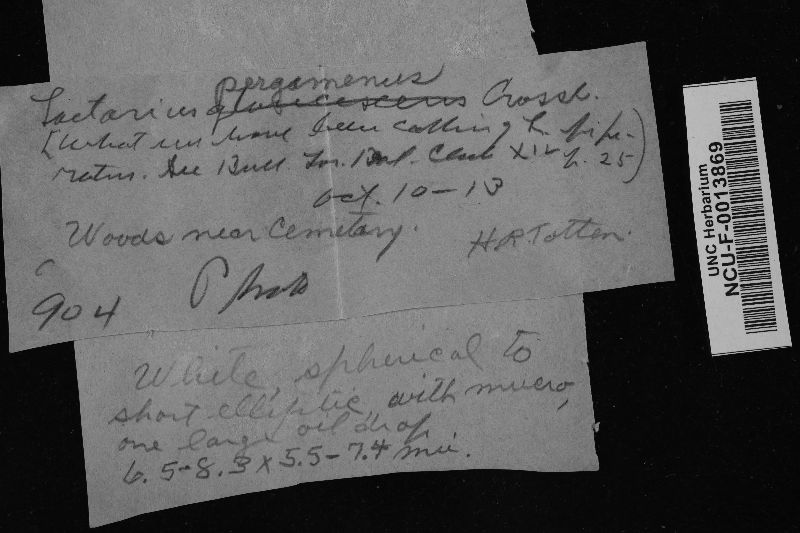 pergamenus
Lactarius glaucescens Crossl.
(What we have been calling L. pipe-
ratus. See Bull. Tor. Bot. Club XIV p. 25)
Oct. 10-13
Woods near Cemetary.
H R Totten.
904
Photo
White, spherical to
short elliptic, with mucro,
one large oil drop
6.5-8.3 x 5.5-7.4 mu.
UNC Herbarium
NCU-F-0013869